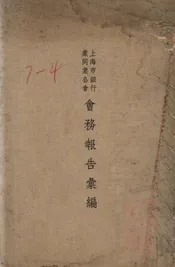 上海市銀行
業同業公會
會務報告彙編
7-4